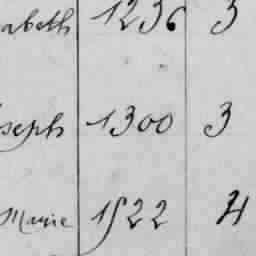 abeth 1236 3
seph 1300 3
Marie 1522 4